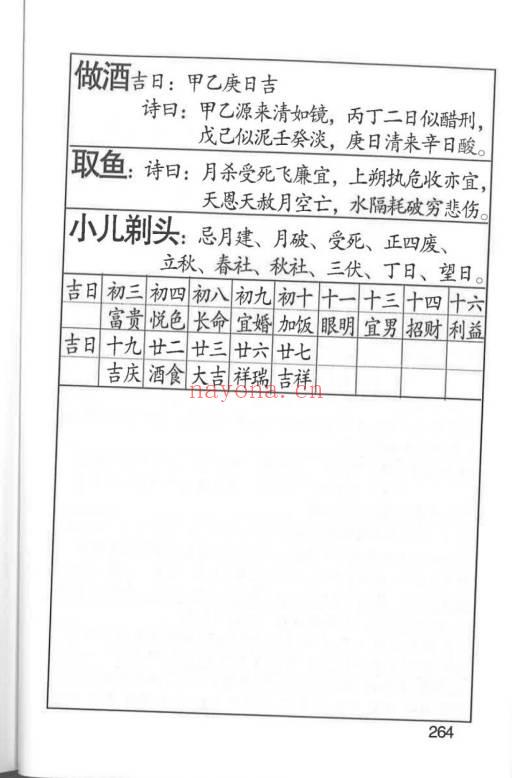 做酒吉日：甲乙庚日吉
诗曰：甲乙源来清如镜，丙丁二日似醋刑，
戊己似泥壬癸淡，庚日清来辛日酸。
取鱼：诗曰：月杀受死飞廉宜，上朔执危收亦宜，
天恩天赦月空亡，水隔耗破穷悲伤。
小儿剃头：忌月建、月破、受死、正四废、
立秋、春社、秋社、三伏、丁日、望日。
吉日 初三 初四 初八 初九 初十 十一 十三 十四 十六
富贵 悦色 长命 宜婚 加饭 眼明 宜男 招财 利益
吉日 十九 廿二 廿三 廿六 廿七
吉庆 酒食 大吉 祥瑞 吉祥
nayona.cn
264